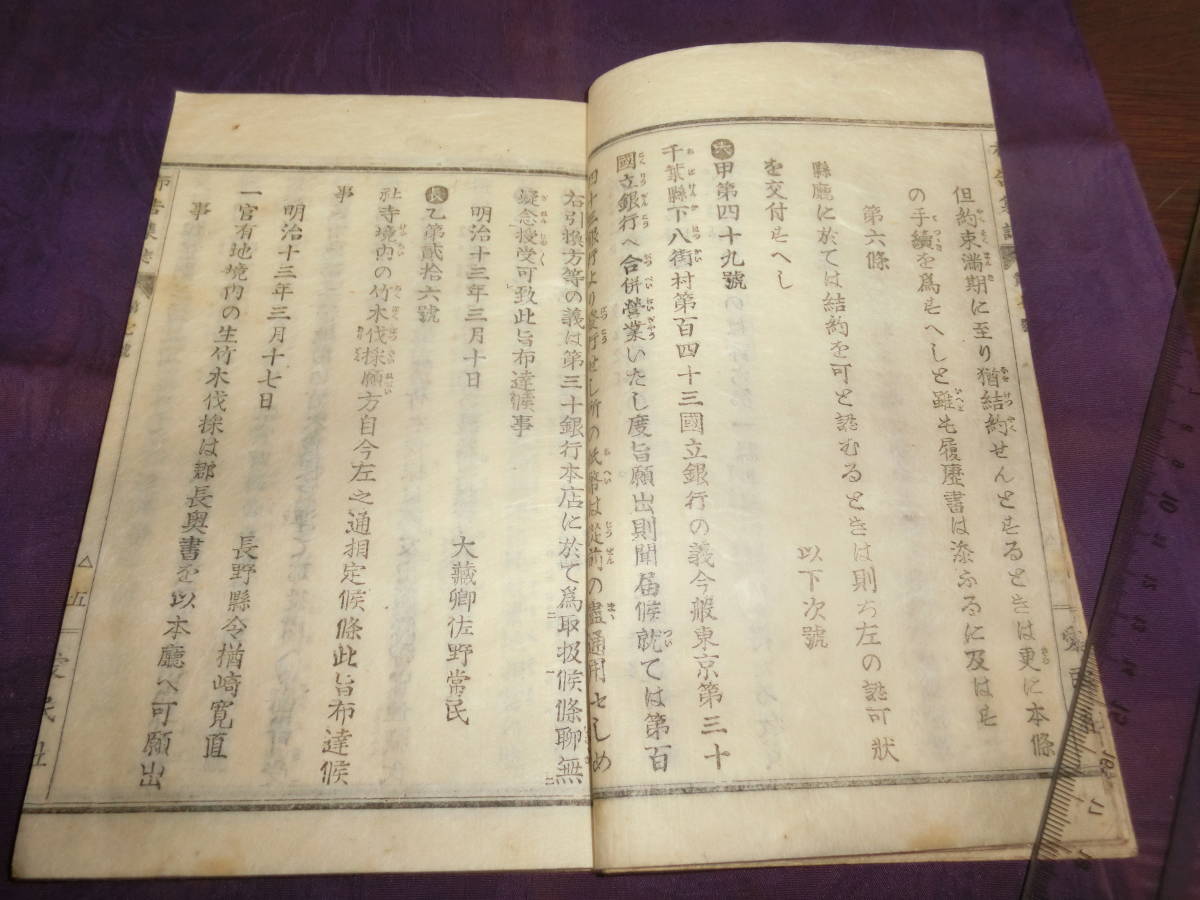 但約束滿期に至り猶結約せんとするときは更に本條
の手續を爲すへしと雖も履歷書は添ふるに及はす
第六條
縣廳に於ては結約を可と認むるときは則ち左の認可狀
を交付すへし
以下次號
大 甲第四十九號
千葉縣下八街村第百四十三國立銀行の義今般東京第三十
國立銀行へ合併營業いたし度旨願出則聞届候就ては第百
四十三銀行より發行せし所の紙幣は從前の儘通用せしめ
右引換方等の義は第三十銀行本店に於て爲取扱候條聊無
疑念授受可致此旨布達候事
明治十三年三月十日
大藏卿佐野常民
長 乙第貳拾六號
社寺境內の竹木伐採願方自今左之通相定候條此旨布達候
事
明治十三年三月十七日
長野縣令楢崎寬直
一官有地境內の生竹木伐採は郡長奧書を以本廳へ可願出
事
五
愛民社